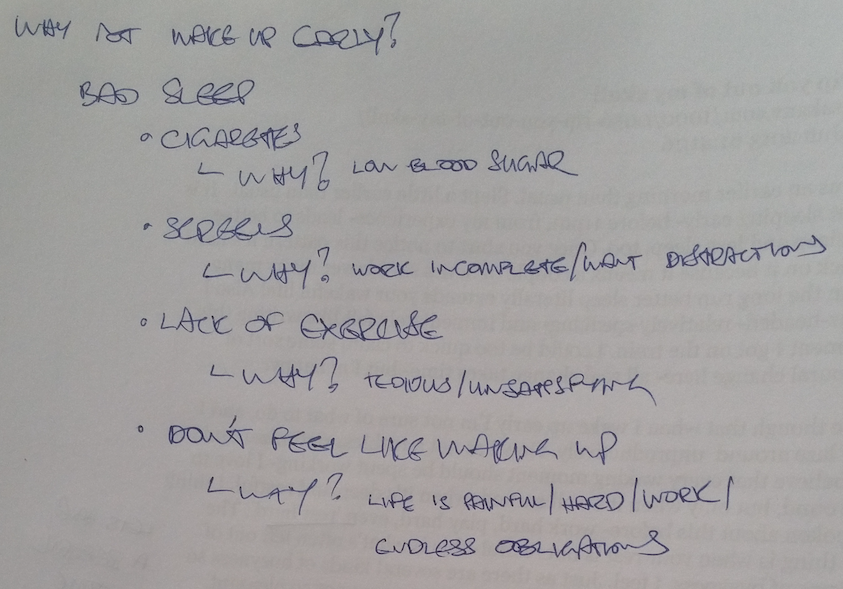 WHY NOT WAKE UP EARLY?
BAD SLEEP
• CIGARETTES
└ WHY? LOW BLOOD SUGAR
• SCREENS
└ WHY? WORK INCOMPLETE/WANT DISTRACTIONS
• LACK OF EXERCISE
└ WHY? TEDIOUS/UNSATISFYING
• DON'T FEEL LIKE WAKING UP
└ WHY? LIFE IS PAINFUL/HARD/WORK/
ENDLESS OBLIGATIONS